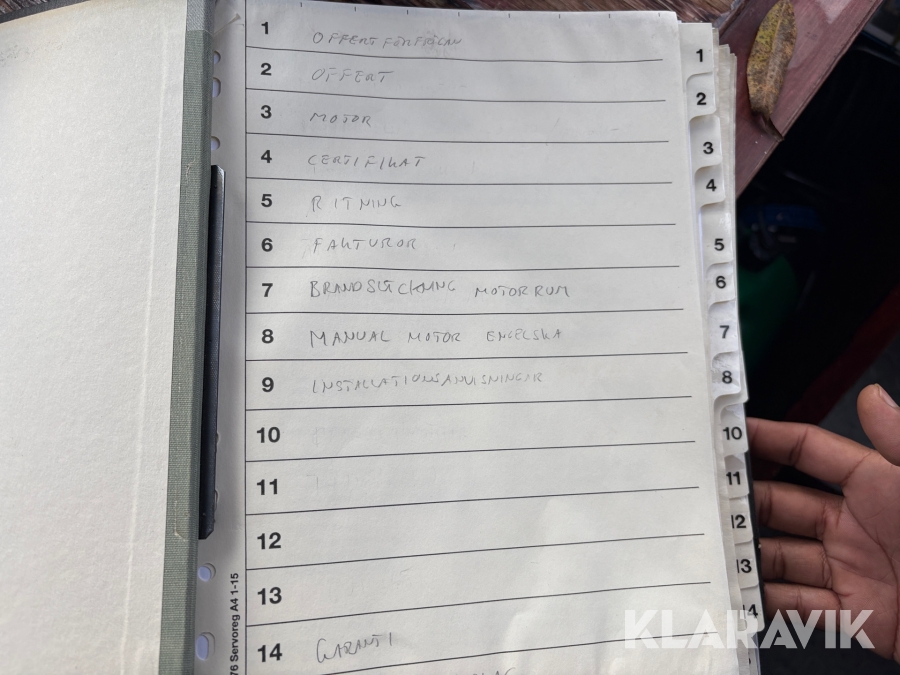 1 OFFERTFÖRFRÅGAN
2 OFFERT
3 MOTOR
4 CERTIFIKAT
5 RITNING
6 FAKTUROR
7 BRANDSLÄCKNING MOTORRUM
8 MANUAL MOTOR ENGELSKA
9 INSTALLATIONSANVISNINGAR
10
11
12
13
14 GARANTI
1
2
3
4
5
6
7
8
10
11
12
13
14
76 Servoreg A4 1-15
KLARAVIK